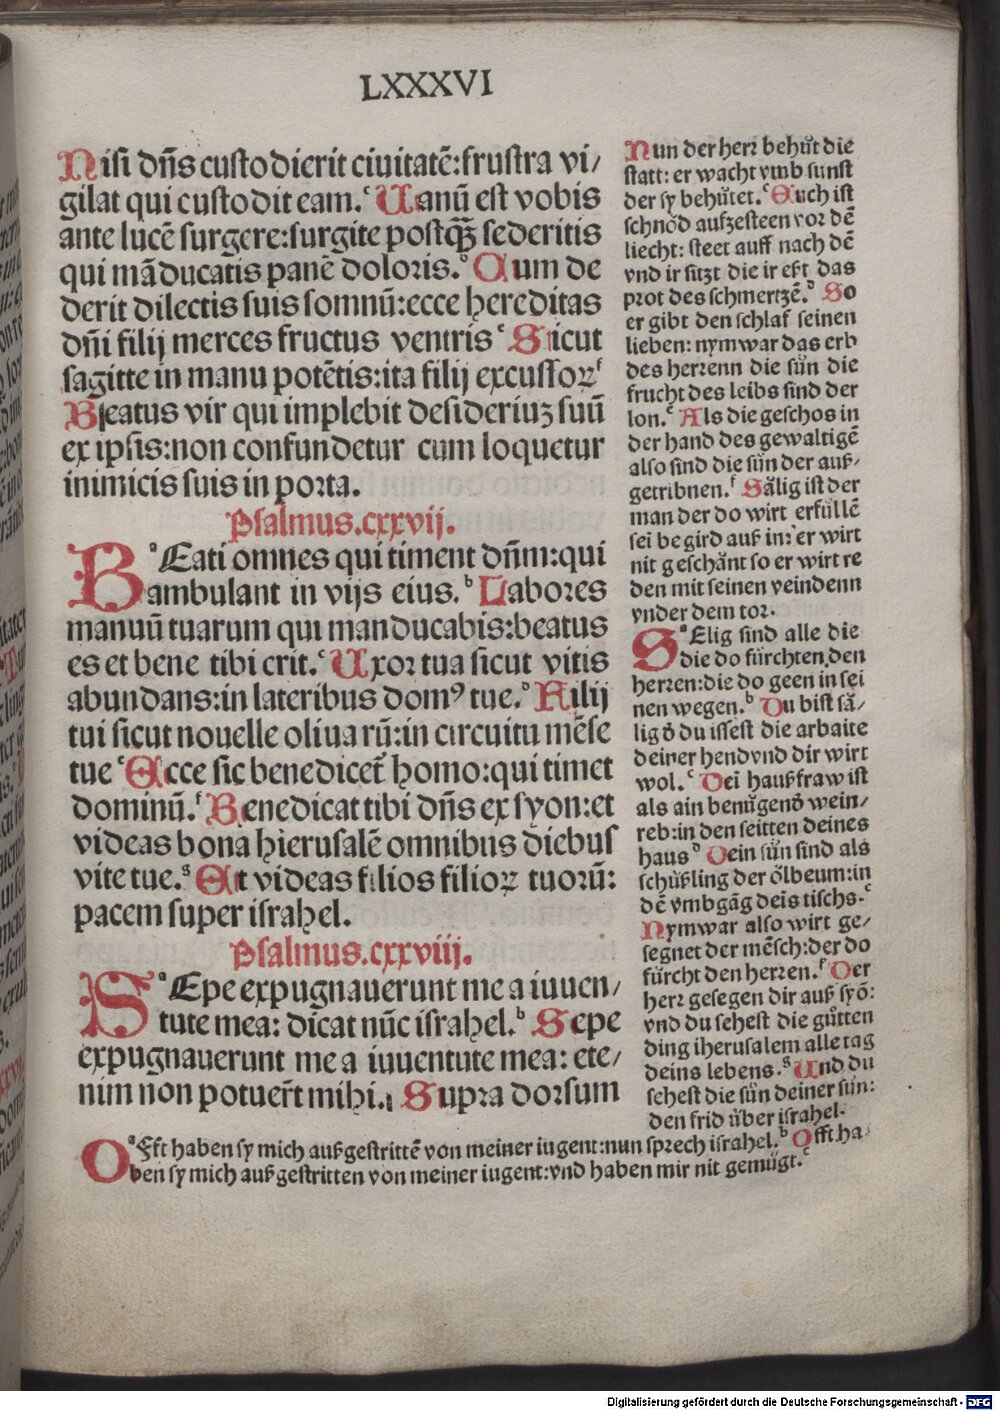 LXXXVI
Nisi dñs custodierit ciuitatē:frustra vi/
gilat qui custodit eam.ᶜ Uanū est vobis
ante lucē surgere:surgite postq̄ꝫ sederitis
qui māducatis panē doloris.ᵈ Cum de
derit dilectis suis somnū:ecce hereditas
dñi filij merces fructus ventris ᵉ Sicut
sagitte in manu potētis:ita filij excussoꝝᶠ
Beatus vir qui implebit desideriuꝫ suū
ex ipsis:non confundetur cum loquetur
inimicis suis in porta.
Psalmus.cxxvij.
BᵃEati omnes qui timent dñm:qui
ambulant in vijs eius.ᵇ Labores
manuū tuarum qui manducabis:beatus
es et bene tibi erit.ᶜ Uxor tua sicut vitis
abundans:in lateribus domꝰ tue.ᵈ Filij
tui sicut nouelle oliuarū:in circuitu mēse
tue ᵉEcce sic benedicet̃ homo:qui timet
dominū.ᶠ Benedicat tibi dñs ex syon:et
videas bona hierusalē omnibus diebus
vite tue.ᵍ Et videas filios filioꝝ tuorū:
pacem super israhel.
Psalmus.cxxviij.
SᵃEpe expugnauerunt me a iuuen/
tute mea: dicat nūc israhel.ᵇ Sepe
expugnauerunt me a iuuentute mea: ete/
nim non potuer̃t mihi. Supra dorsum
Nun der herr behüt die
statt: er wacht vmb sunst
der sy behütet.ᶜ Auch ist
schnöd aufzesteen vor dē
liecht: steet auff nach dē
vnd ir sitzt die ir eßt das
prot des schmertzē.ᵈ So
er gibt den schlaf seinen
lieben: nym war das erb
des herrenn die sün die
frucht des leibs sind der
lon.ᵉ Als die geschos in
der hand des gewaltigē
also sind die sün der auß/
getribnen.ᶠ Sälig ist der
man der do wirt erfüllē
sei begird auß in: er wirt
nit geschänt so er wirt re
den mit seinen veindenn
vnder dem tor.
SᵃElig sind alle die
die do fürchten den
herren:die do geen in sei
nen wegen.ᵇ Du bist sä/
lig dͦ du issest die arbaite
deiner hend vnd dir wirt
wol.ᶜ Dei haußfraw ist
als ain benügendͦ wein/
reb:in den seitten deines
hausᵈ Dein sün sind als
schüßling der ölbeum:in
dē vmbgāg deis tischs.ᵉ
Nymwar also wirt ge/
segnet der mēsch:der do
fürcht den herren.ᶠ Der
herr gesegen dir auß syō:
vnd du sehest die gütten
ding iherusalem alle tag
deins lebens.ᵍ Und du
sehest die sün deiner sün:
den frid über israhel.
OᵃFft haben sy mich außgestrittē von meiner iugent:nun sprech israhel.ᵇ Offt ha/
ben sy mich außgestritten von meiner iugent:vnd haben mir nit gemügt.ᶜ
Digitalisierung gefördert durch die Deutsche Forschungsgemeinschaft - DFG